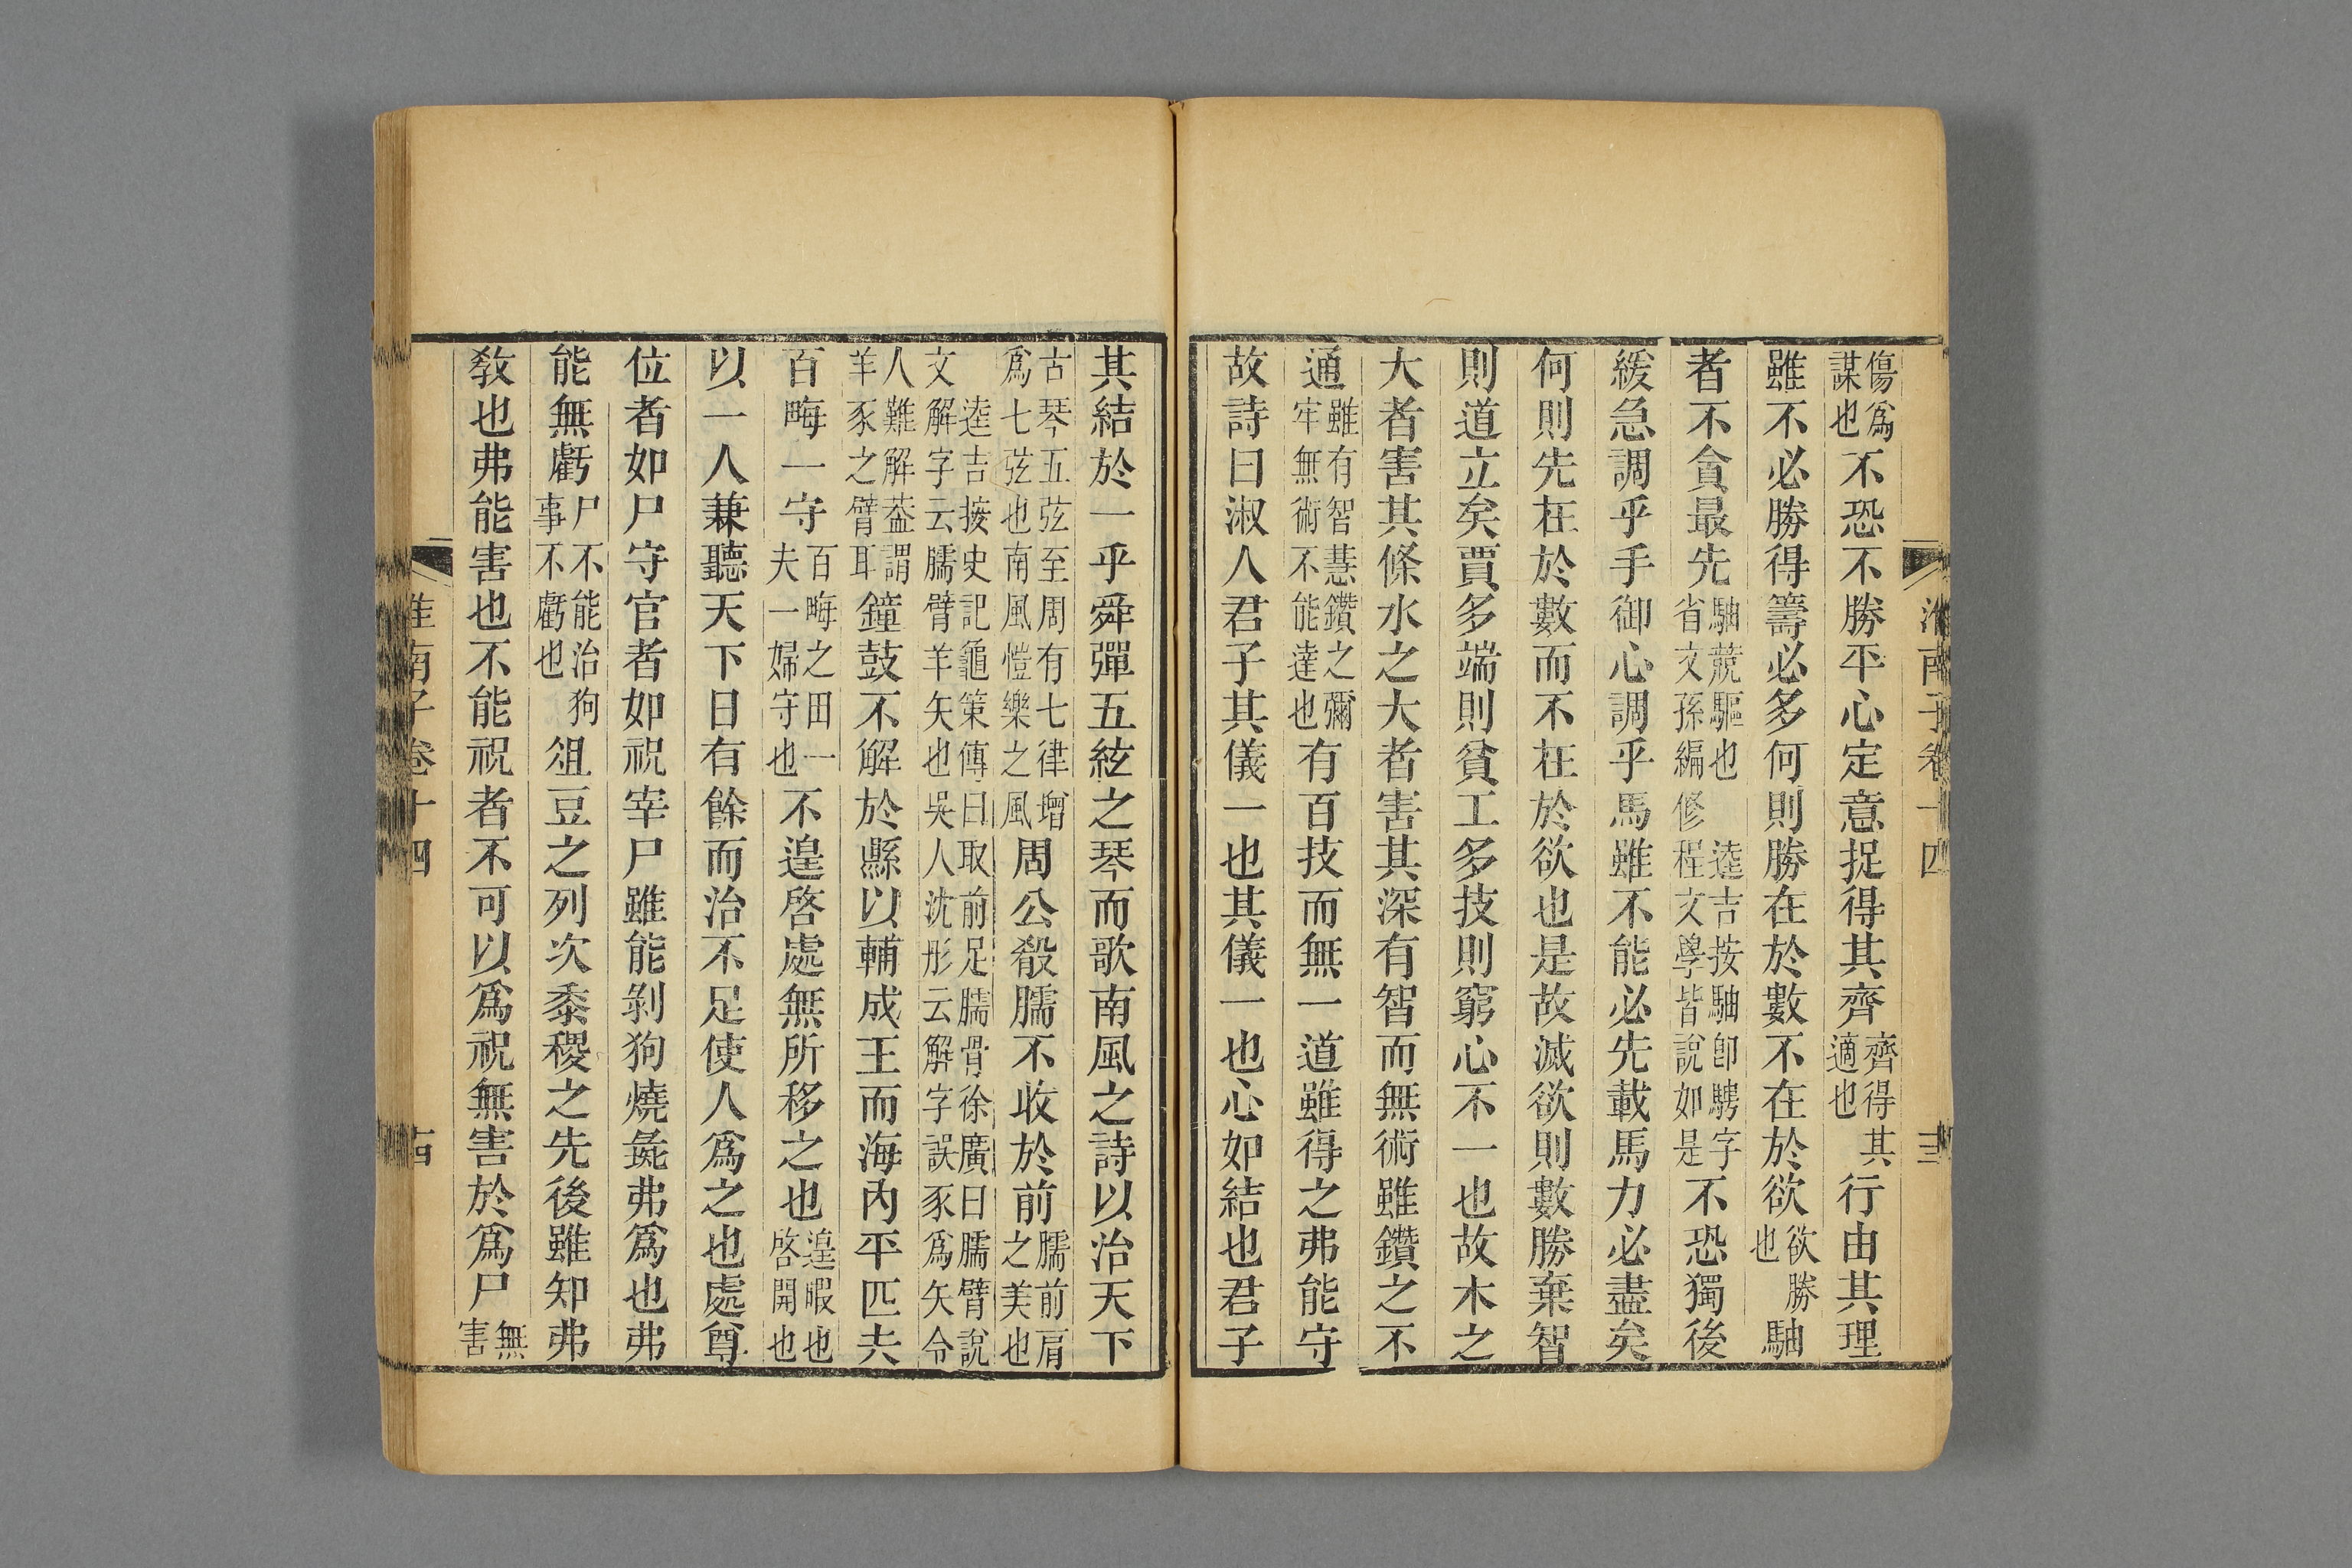 傷爲謀也不恐不勝平心定意捉得其齊齊得其適也行由其理
雖不必勝得籌必多何則勝在於數不在於欲欲勝也駎
者不貪最先駎競驅也省文孫編修程文學皆說如是逵吉按駎卽騁字不恐獨後
緩急調乎手御心調乎馬雖不能必先載馬力必盡矣
何則先在於數而不在於欲也是故滅欲則數勝棄智
則道立矣賈多端則貧工多技則窮心不一也故木之
大者害其條水之大者害其深有智而無術雖鑽之不
通雖有智慧鑽之彌牢無術不能達也有百技而無一道雖得之弗能守
故詩曰淑人君子其儀一也其儀一也心如結也君子
淮南子卷十四
其結於一乎舜彈五絃之琴而歌南風之詩以治天下
古琴五弦至周有七律增爲七弦也南風愷樂之風周公殽臑不收於前臑前肩之美也
逵吉按史記龜策傳曰取前足臑骨徐廣曰臑臂說文解字云臑臂羊矢也吳人沈彤云解字誤豕爲矢令
人難解葢謂羊豕之臂耳鐘鼓不解於縣以輔成王而海內平匹夫
百畮一守百畮之田一夫一婦守也不遑啓處無所移之也遑暇也啓開也
以一人兼聽天下日有餘而治不足使人爲之也處尊
位者如尸守官者如祝宰尸雖能剝狗燒彘弗爲也弗
能無虧尸不能治狗事不虧也俎豆之列次黍稷之先後雖知弗
敎也弗能害也不能祝者不可以爲祝無害於爲尸無害
淮南子卷十四